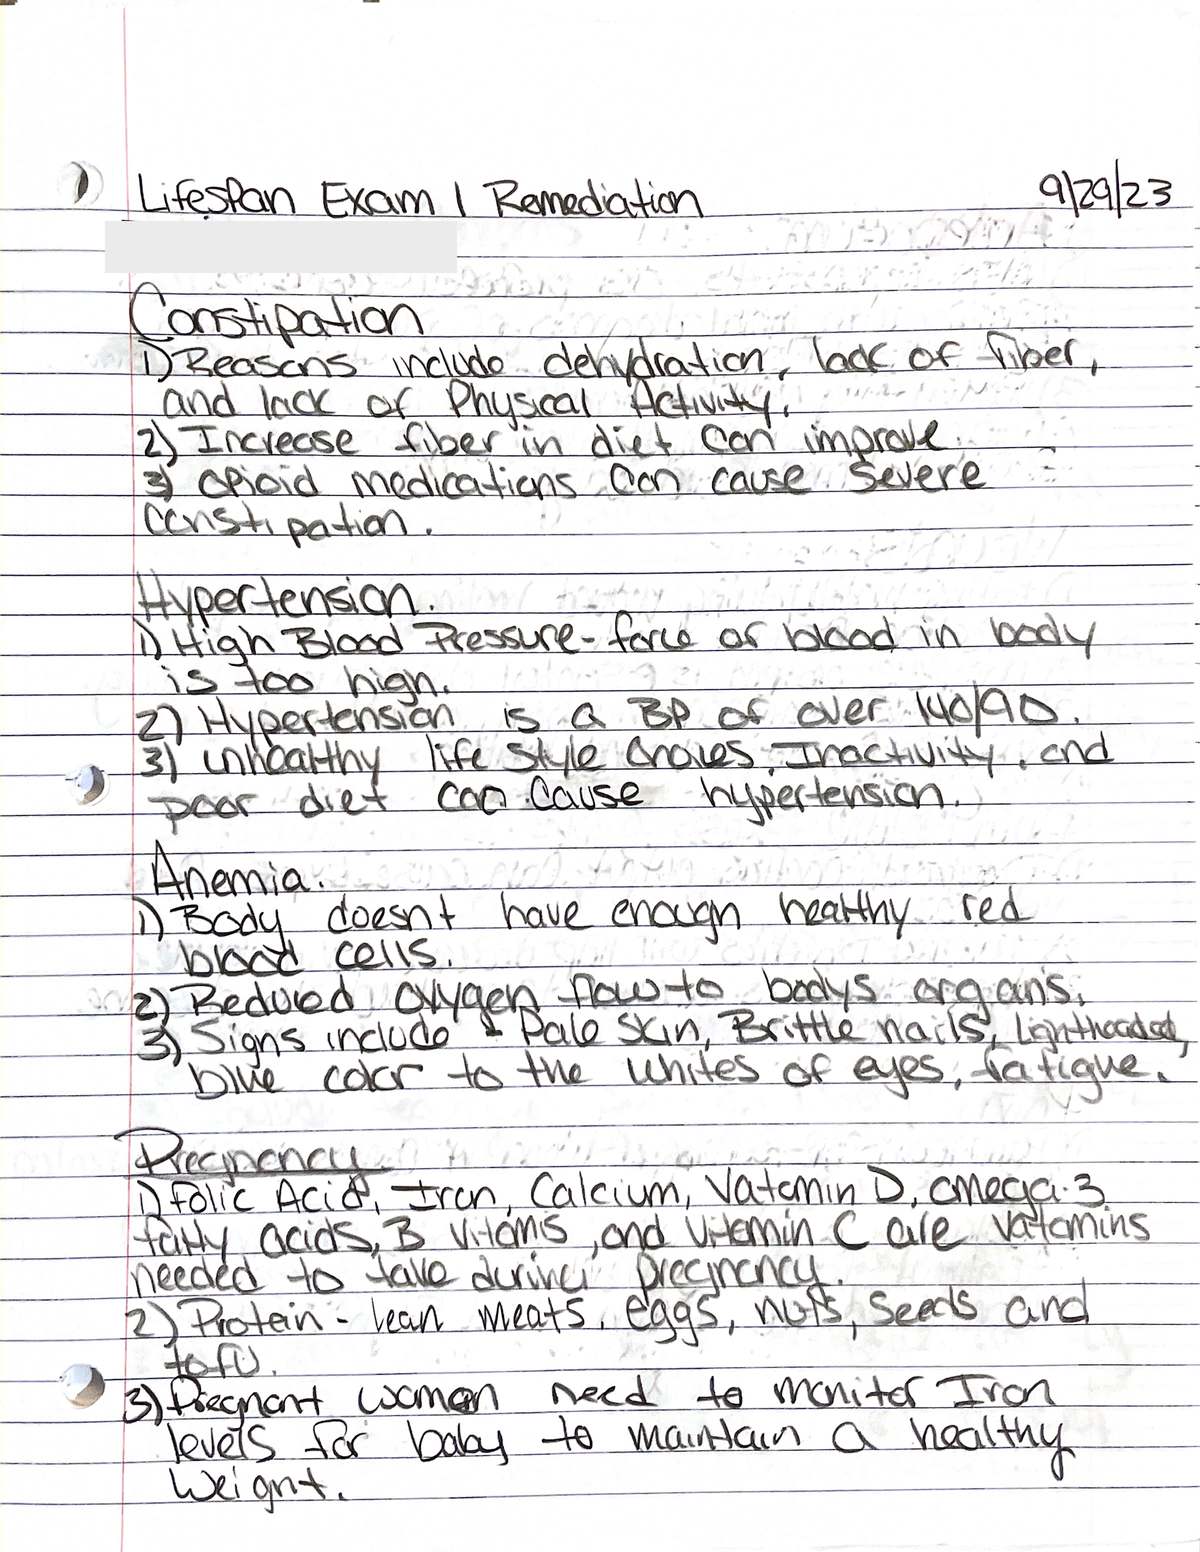 Lifespan Exam 1 Remediation 9/29/23
Constipation
1) Reasons include dehydration, lack of fiber,
and lack of Physical Activity.
2) Increase fiber in diet can improve.
3) Opioid medications can cause severe
constipation.
Hypertension.
1) High Blood Pressure - force of blood in body
is too high.
2) Hypertension is a BP of over 140/90.
3) unhealthy life style choices, Inactivity, and
poor diet can cause hypertension.
Anemia.
1) Body doesnt have enough healthy red
blood cells.
2) Reduced oxygen flow to bodys organs.
3) Signs include - Pale skin, Brittle nails, Lightheaded,
blue color to the whites of eyes, fatigue.
Pregnancy
1) folic Acid, Iron, Calcium, Vatamin D, omega-3
fatty acids, B vitamis, and Vitamin C are vatamins
needed to take during pregnancy.
2) Protein - lean meats, eggs, nuts, seeds and
tofu.
3) Pregnant women need to monitor Iron
levels for baby to maintain a healthy
weight.